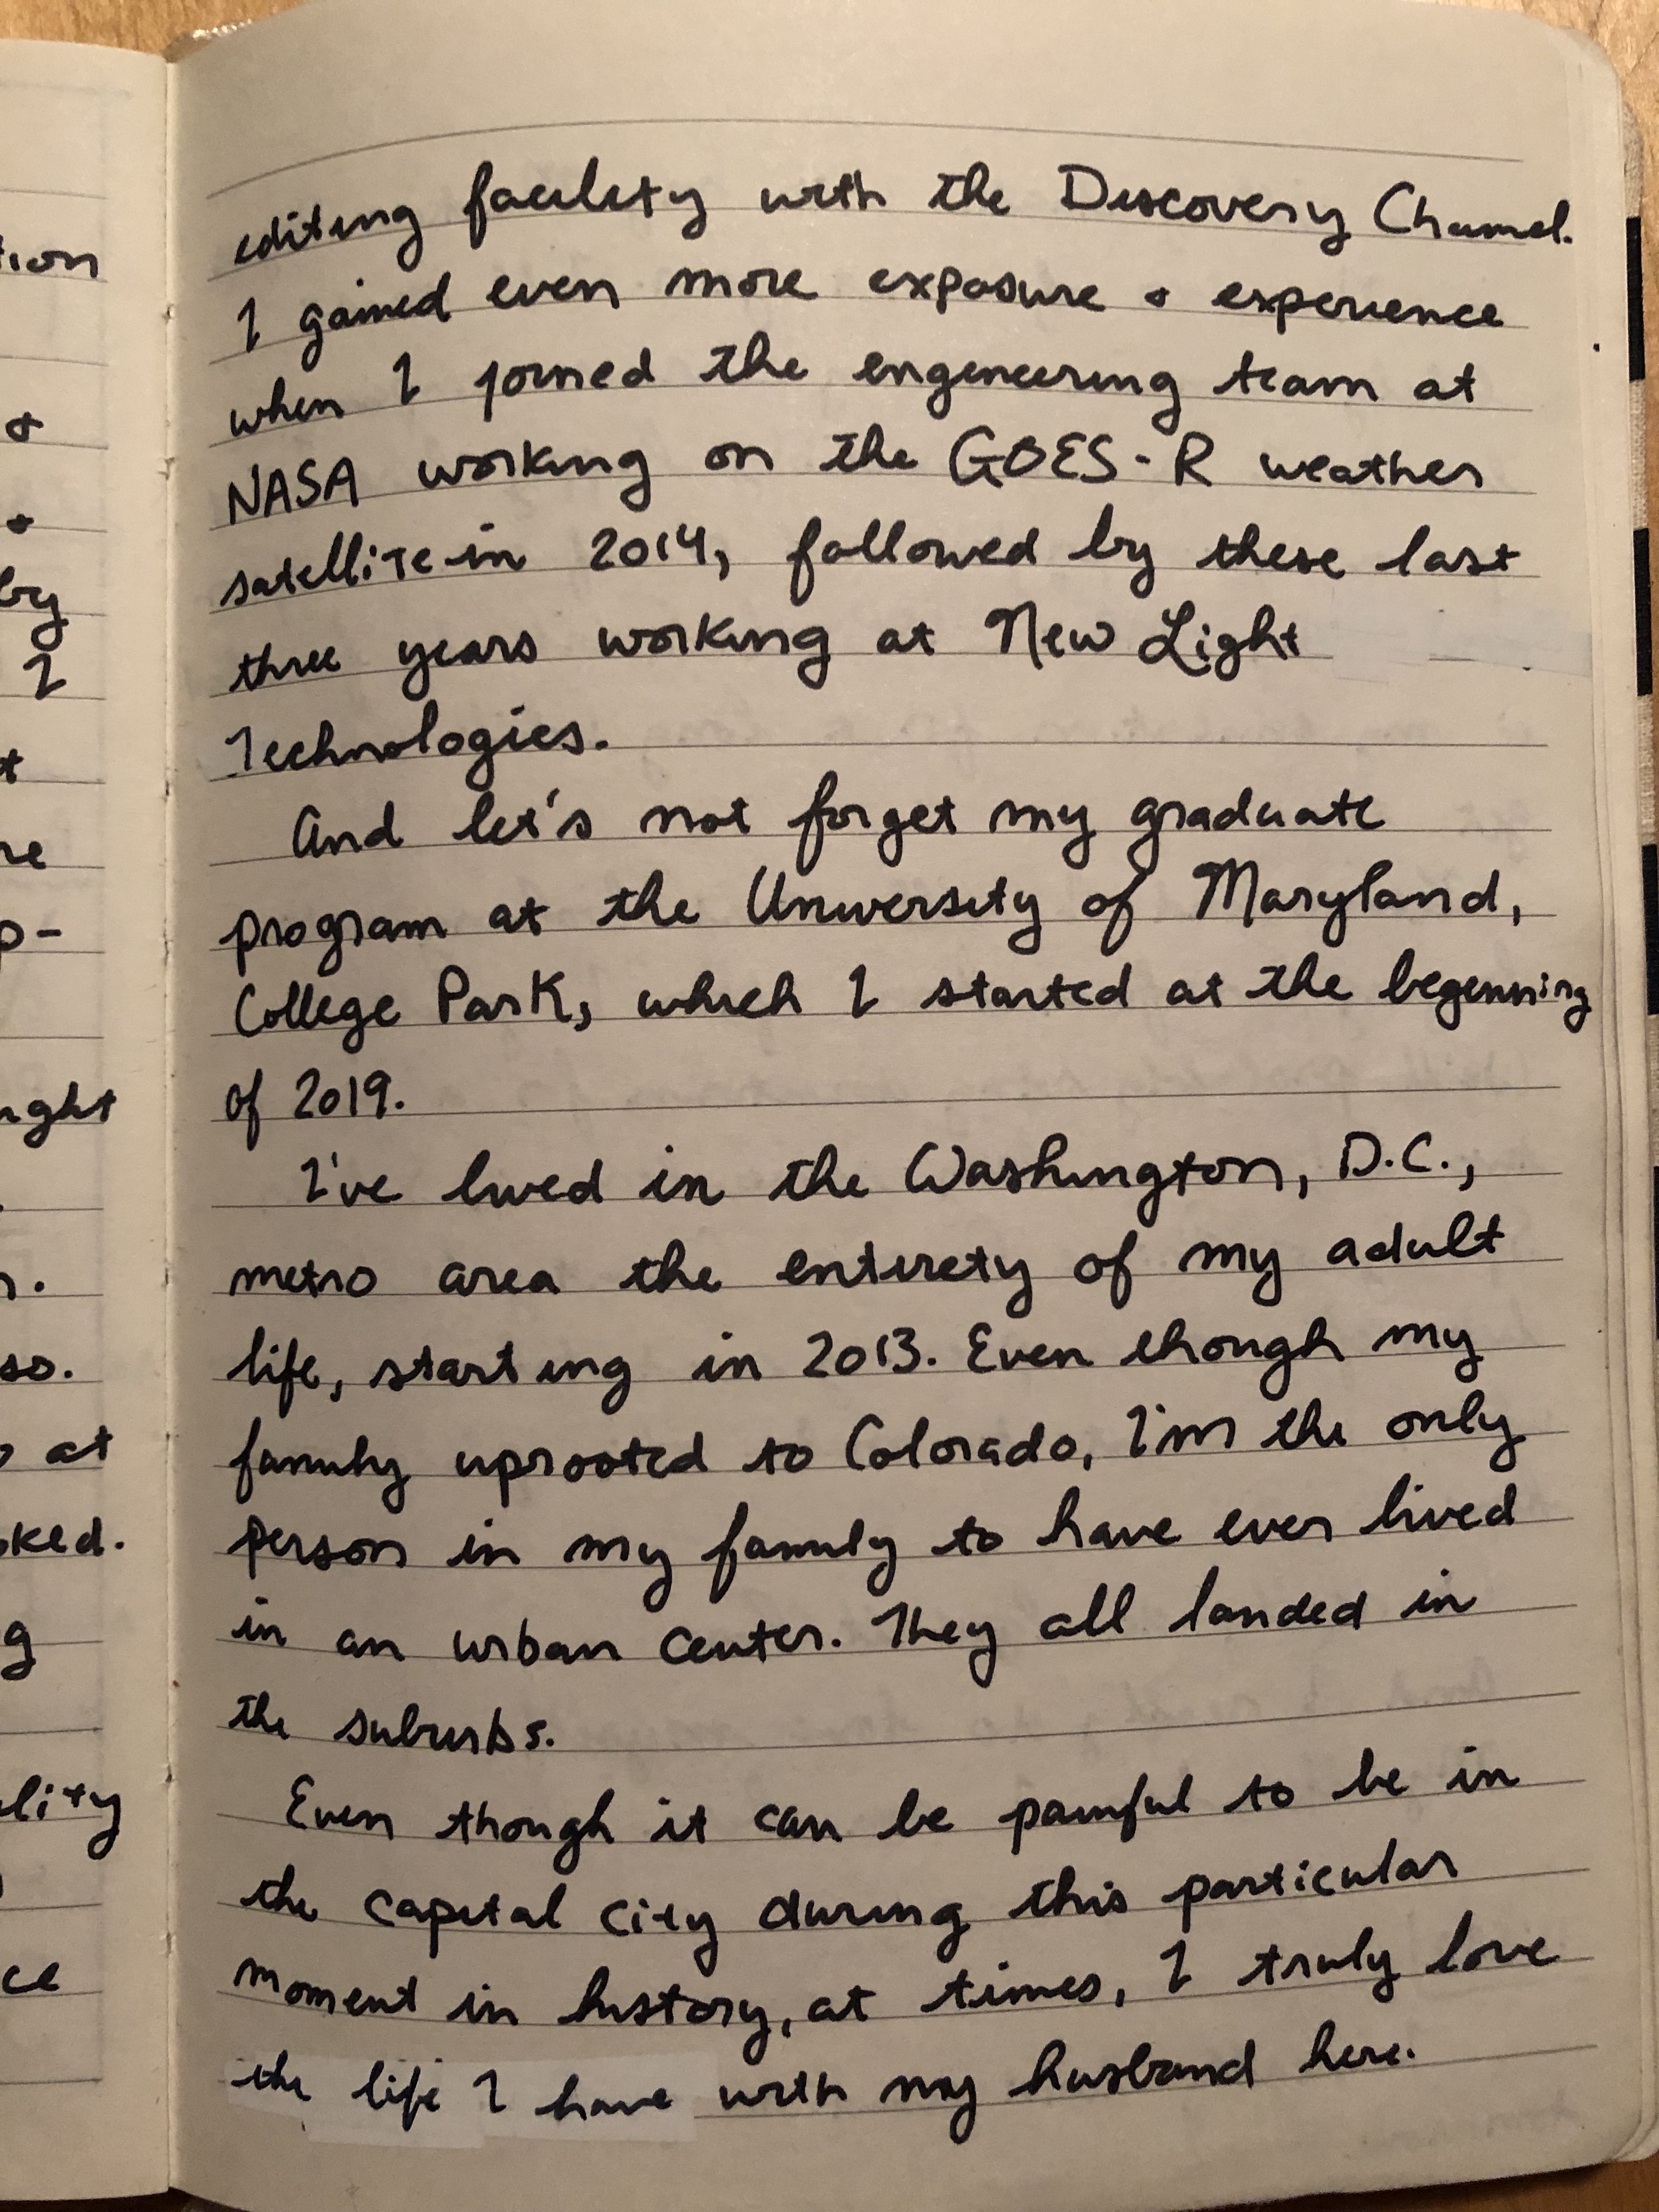 tion
&
&
by
I
t
re
p-
ght
.
n.
so.
at
ked.
g
lity
ce
editing facility with the Discovery Channel.
I gained even more exposure & experience
when I joined the engineering team at
NASA working on the GOES-R weather
satellite in 2014, followed by these last
three years working at New Light
Technologies.
And let's not forget my graduate
program at the University of Maryland,
College Park, which I started at the beginning
of 2019.
I've lived in the Washington, D.C.,
metro area the entirety of my adult
life, starting in 2013. Even though my
family uprooted to Colorado, I'm the only
person in my family to have ever lived
in an urban center. They all landed in
the suburbs.
Even though it can be painful to be in
the capital city during this particular
moment in history, at times, I truly love
the life I have with my husband here.